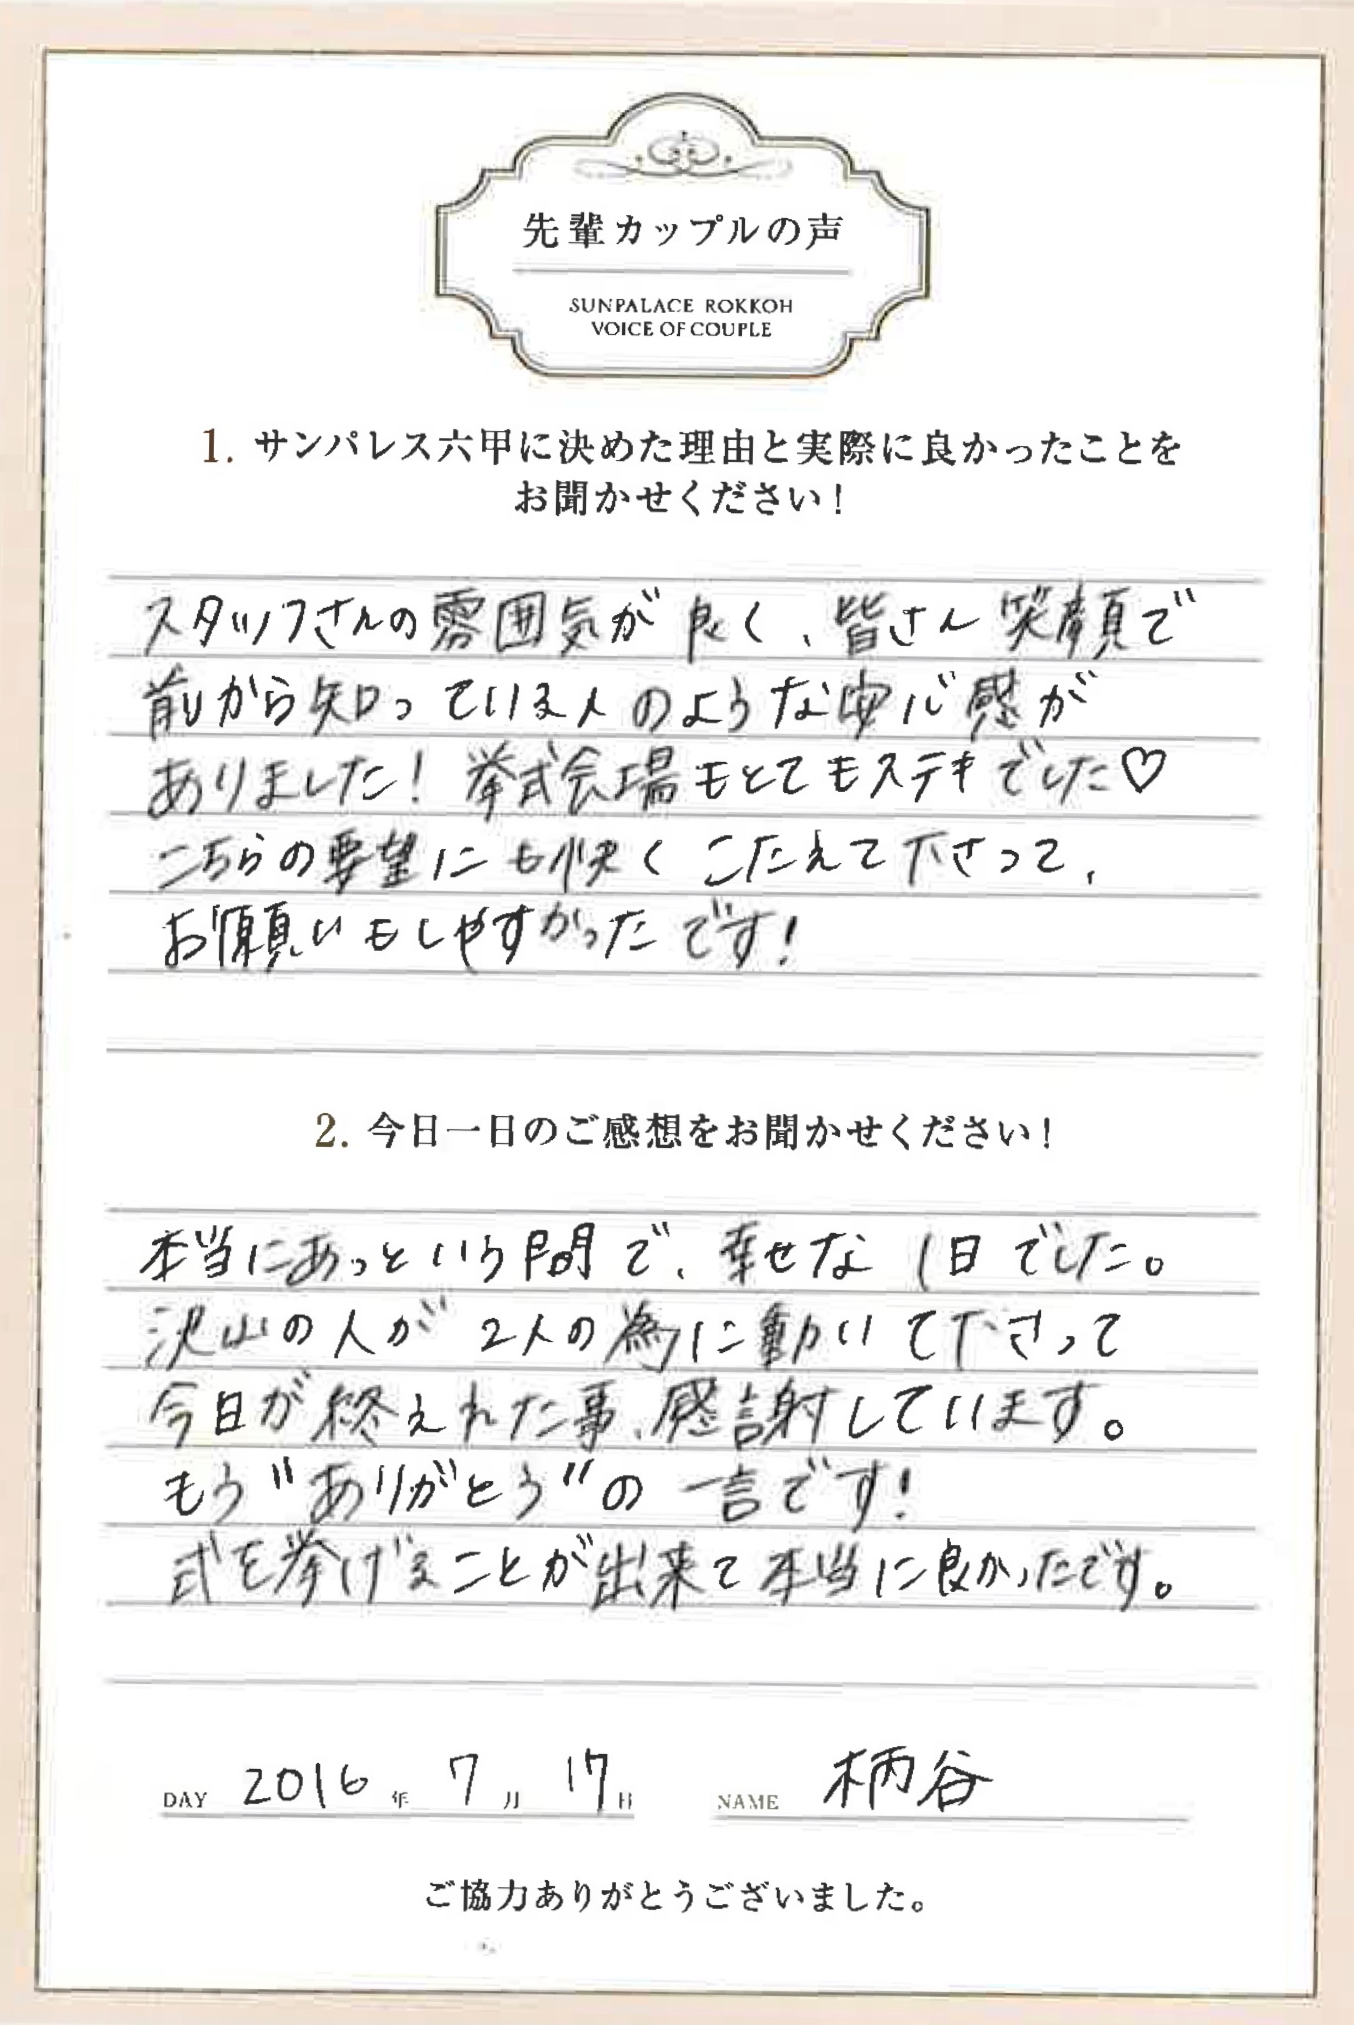 先輩カップルの声
SUNPALACE ROKKOH
VOICE OF COUPLE
1. サンパレス六甲に決めた理由と実際に良かったことを
お聞かせください!
スタッフさんの雰囲気が良く、皆さん笑顔で
前から知っている人のような安心感が
ありました!挙式会場もとてもステキでした♡
こちらの要望にも快くこたえて下さって、
お願いもしやすかったです!
2. 今日一日のご感想をお聞かせください!
本当にあっという間で、幸せな1日でした。
沢山の人が2人の為に動いて下さって
今日が終えれた事、感謝しています。
もう"ありがとう"の一言です!
式を挙げることが出来て本当に良かったです。
DAY 2016年 7月 17日 NAME 柄谷
ご協力ありがとうございました。